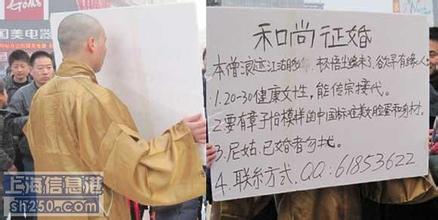 Goms
和美电器
和尚征婚
本僧浪迹江湖
1.20-30健康女性,能传宗接代。
2.要有章子怡模样的中国标准美女脸蛋和身材。
3.尼姑,已婚者勿扰。
4.联系方式:QQ:61853622
上海信息港
sh250.com